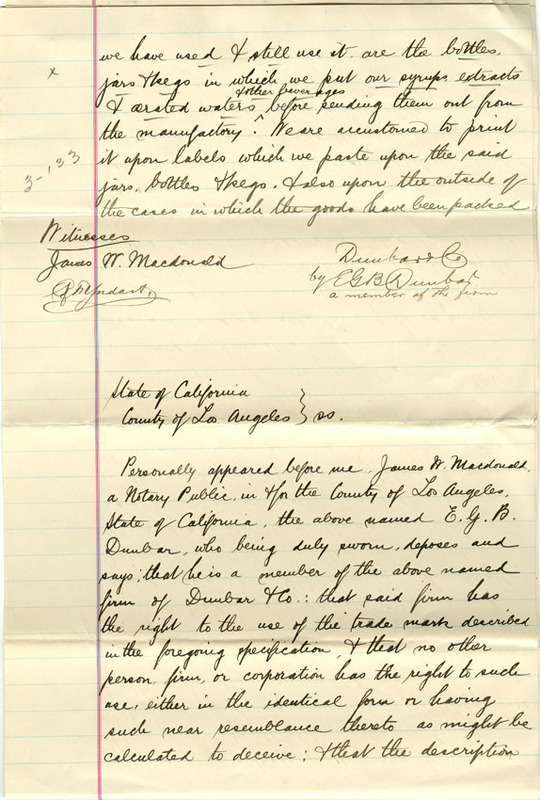 we have used & still use it. are the bottles,
jars & kegs in which we put our syrups extracts
& other beverages
& ærated waters ^ before sending them out from
the manufactory. We are accustomed to print
it upon labels which we paste upon the said
jars, bottles & kegs. & also upon the outside of
the cases in which the goods have been packed
x
3-133
Witnesses
James W. Macdonald
Dunbar & Co
by E G B Dunbar
a member of the firm
State of California
County of Los Angeles } ss.
Personally appeared before me, James W. Macdonald,
a Notary Public, in & for the County of Los Angeles,
State of California, the above named E. G. B.
Dunbar, who being duly sworn, deposes and
says; that he is a member of the above named
firm of Dunbar & Co.: that said firm has
the right to the use of the trade mark described
in the foregoing specification, & that no other
person, firm, or corporation has the right to such
use, either in the identical form or having
such near resemblance thereto as might be
calculated to deceive; & that the description